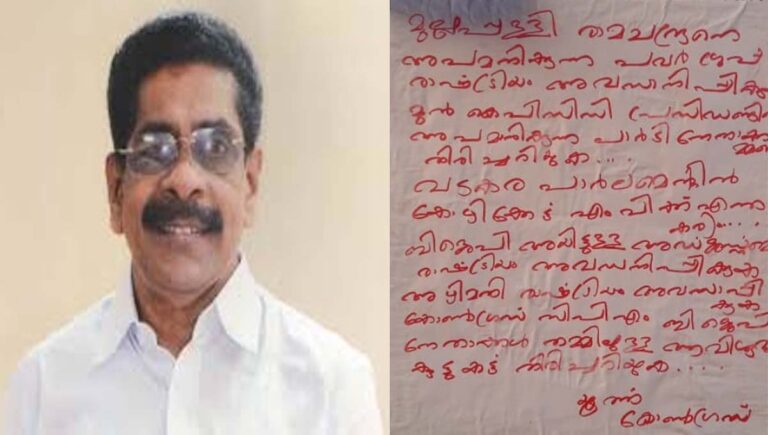 മുല്ലപ്പള്ളി രാമചന്ദ്രനെ
അപമാനിക്കുന്ന പവർ ഗ്രൂപ്പ്
രാഷ്ട്രീയം അവസാനിപ്പിക്കുക
മുൻ കെപിസിസി പ്രസിഡണ്ടിനെ
അപമാനിക്കുന്ന പാർടി നേതാക്കളെ
തിരിച്ചറിയുക....
വടകര പാർലമെന്റിൽ
കോഴിക്കോട് എംപിക്ക് എന്തു
കാര്യം....
ബിജെപി ആയിട്ടുള്ള
രാഷ്ട്രീയം അവസാനിപ്പിക്കുക
അഴിമതി രാഷ്ട്രീയം അവസാനിപ്പിക്കുക
കോൺഗ്രസ് സിപിഎം ബിജെപി
നേതാക്കൾ തമ്മിലുള്ള അവിശുദ്ധ
കൂട്ടുകെട്ട് തിരിച്ചറിയുക....
കോൺഗ്രസ്